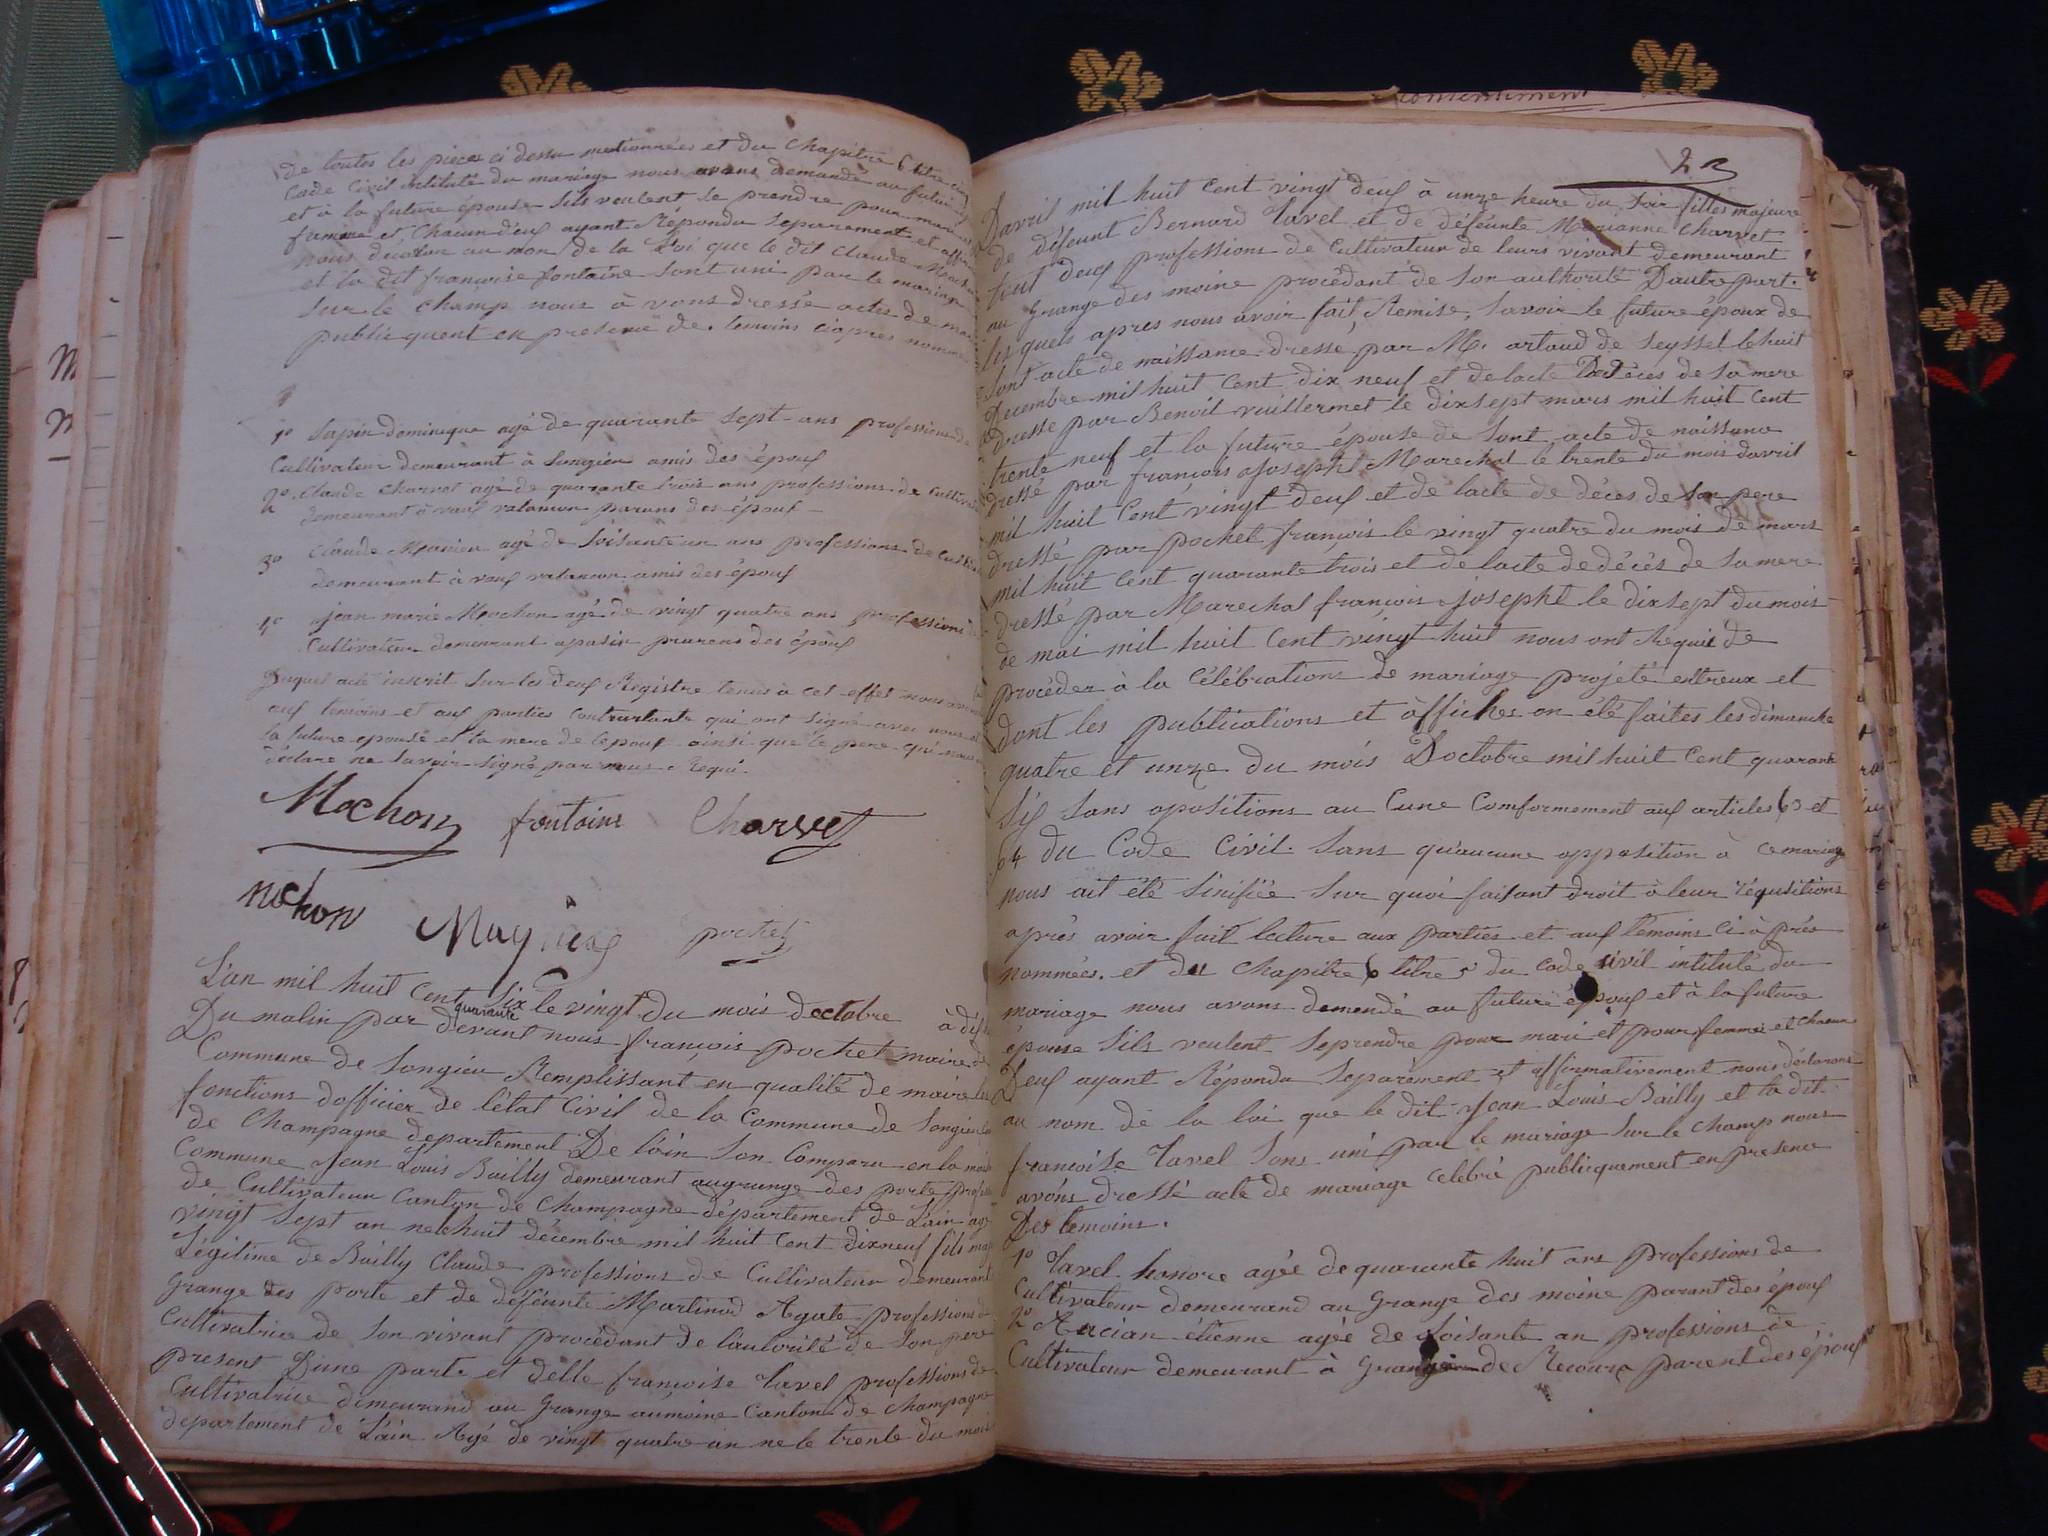 de toutes les pieces ci dessu mentionnées et du Chapitre 6 titre cinq
Code Civil intitulé du mariage nous avons demandé au futur
et à la future épouse sils veulent se prendre pour mari
femme et Chacun deux ayant Répondu separement et affir
nous déclaron au nom de la Loi que le dit Claude
et la dit francoise fontaine sont uni par le mariage
sur le champ nous à vons dressé actes de
publicquent en presence de temoins ciapres nommé
1º Sapin dominique agé de quarante sept ans professions de
Cultivateur demeurant à Songieu amis des épouf
2º Claude Charvet agé de quarante trois ans professions de
demeurant à vauf valancon parans des épouf
3º Claude agé de soisanteun ans professions de
demeurant à vauf valancon amis des épouf
4º jean marie Mochon agé de vingt quatre ans professions
Cultivateur demeurant apasin parens des épouf
Duquel acte inscrit sur les deuf Registre tenus à cet effet nous
auf temoins et auf parties Contractante qui ont signé avec nous
la future epouse et la mere de lepouf ainsi que le pere qui nous
déclare ne savoir signé par nous Requi.
Mochon fontaine Charvet
mochon pochet
L'an mil huit cent quarante six le vingt du mois doctobre à
Du matin par devant nous françois pochet maire
Commune de Songieu Remplissant en qualité de maire
fonctions dofficier de l'état Civil de la Commune de Songieu
de Champagne departement De l'ain Son Comparu en la
Commune Jean Louis Bailly demeurant augrange des porte
de Cultivateur Canton de Champagne département de L'ain agé
vingt sept an né lehuit décembre mil huit cent dixneuf fils
Légitime de Bailly Claude professions de Cultivateur demeurant
Grange des porte et de déféunte Martinod Agate professions
Cultivatrice de son vivant procédant de l'autorité de son pere
present D'une parte et delle françoise Tavel professions de
Cultivatrice demeurand au Grange aumoine Canton de Champagne
departement de L'ain Agé de vingt quatre an né le trente du mois
23
Davril mil huit cent vingt deuf à unze heure du soir fille majeure
de déféunt Bernard Tavel et de déféunte Marianne Charvet
tout deux professions de Cultivateur de leurs vivant demeurant
au Grange des moine procédant de son authorité Dautre part.
lesquels apres nous avoir fait Remise, savoir le future époux de
sont acte de naissance dressé par M. artaud de Seyssel lehuit
Decembre mil huit cent dix neuf et delacte Décès de sa mere
dresse par Benoit vuillermet le dixsept mars mil huit cent
trente neuf et la future épouse de sont acte de naissance
dressé par françois Josepht Marechal le trente du mois davril
mil huit cent vingt deuf et de lacte de déces de son pere
dressé par pochet françois le vingt quatre du mois de mars
mil huit cent quarante trois et de lacte dedécès de sa mere
dressé par Marechal françois josepht le dixsept dumois
de mai mil huit cent vingt huit nous ont Requit de
procéder à la célébrations de mariage projeté entreux et
dont les publications et affiches on été faites les dimanche
quatre et unze du mois Doctobre mil huit cent quarante
sif sans opositions au Cune Comformement auf articles 63 et
64 du Code Civil. Sans qu'aucune opposition à ce mariage
nous ait été sinifiée sur quoi faisant droit à leur réquisitions
après avoir fait lecture aux parties et auf témoins ci après
nommées. et du chapitre 6 titre 5 du code civil intitulé du
mariage nous avons demandé au futur épouf et à la future
épouse sils veulent seprendre pour mari et pour femme et chacun
Deuf ayant Réponda Séparément et affirmativement nous déclarons
au nom de la loi que le dit Jean Louis Bailly et la dit
francoise Tavel sons uni par le mariage sur le champ nous
avons dressé acte de mariage célébré publicquement en presence
Des temoins.
1º Tavel honore agée de quarante huit ans professions de
Cultivateur demeurand au Grange des moine parant des épouf
2º Ancian étienne agée de soisante an professions de
Cultivateur demeurant à Grange de Recoura parent des épouf